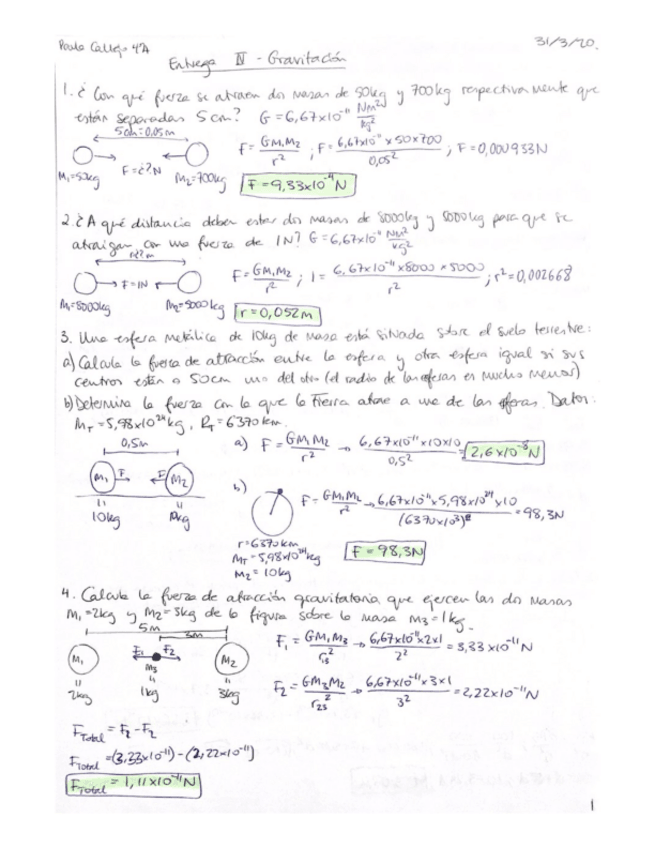 Paula Callejo 4ºA
31/3/20.
Entrega IV - Gravitación
1. ¿Con qué fuerza se atraen dos masas de 50kg y 700kg respectivamente que
están separadas 5cm? G = 6,67x10⁻¹¹ Nm²/kg²
5cm = 0,05m
F = GM₁M₂/r² ; F = 6,67x10⁻¹¹ x 50x700/0,05² ; F = 0,000933N
M₁=50kg F=¿?N M₂=700kg
F = 9,33x10⁻⁴ N
2. ¿A qué distancia deben estar dos masas de 8000kg y 5000kg para que se
atraigan con una fuerza de 1N? G = 6,67x10⁻¹¹ Nm²/kg²
F = GM₁M₂/r² ; 1 = 6,67x10⁻¹¹ x8000 x 5000/r² ; r² = 0,002668
F=1N
M₁=8000kg M₂=5000kg
r = 0,052m
3. Una esfera metálica de 10kg de masa está situada sobre el suelo terrestre:
a) Calcula la fuerza de atracción entre la esfera y otra esfera igual si sus
centros están a 50cm uno del otro (el radio de las esferas es mucho menor)
b) Determina la fuerza con la que la Tierra atrae a una de las esferas. Datos:
M_T = 5,98x10²⁴ kg, R_T = 6370 km.
0,5m
a) F = GM₁M₂/r² → 6,67x10⁻¹¹x10x10/0,5² = 2,6x10⁻⁸ N
M₁ F F M₂
10kg 10kg
b) F = GM₁M₂/r² → 6,67x10⁻¹¹x5,98x10²⁴x10/(6370x10³)² = 98,3N
r=6370km
M_T=5,98x10²⁴kg
M₂=10kg
F = 98,3N
4. Calcula la fuerza de atracción gravitatoria que ejercen las dos masas
M₁=2kg y M₂=3kg de la figura sobre la masa M₃=1kg.
5m
3m
F₁ = GM₁M₃/r₁₃² → 6,67x10⁻¹¹x2x1/2² = 3,33 x10⁻¹¹N
M₁ F₁ F₂ M₃ M₂
2kg 1kg 3kg
F₂ = GM₃M₂/r₂₃² → 6,67x10⁻¹¹x3x1/3² = 2,22x10⁻¹¹N
F_Total = F₂ - F₂
F_Total = (3,33x10⁻¹¹) - (2,22x10⁻¹¹)
F_Total = 1,11x10⁻¹¹ N
1